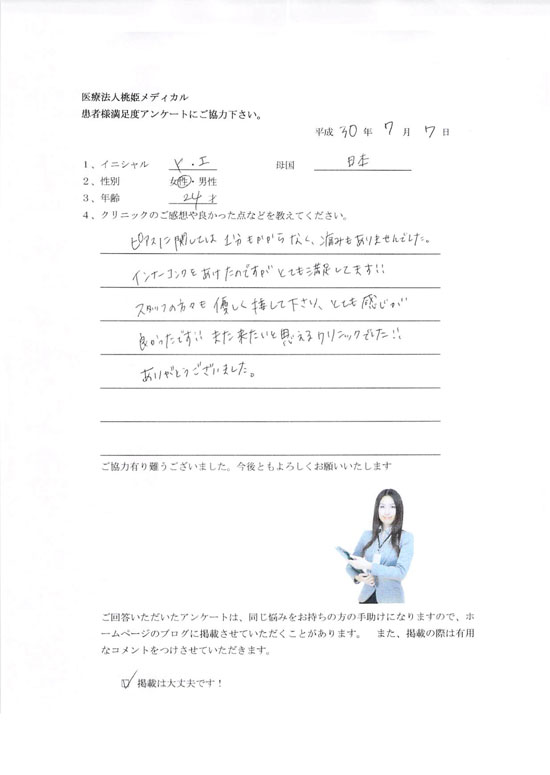 医療法人桃姫メディカル
患者様満足度アンケートにご協力下さい。
平成 30 年 7 月 7 日
1、イニシャル Y・I 母国 日本
2、性別 女性・男性
3、年齢 24 才
4、クリニックのご感想や良かった点などを教えてください。
ピアスに関しては1分もかからなく、痛みもありませんでした。
インナーコンクをあけたのですがとても満足してます!!
スタッフの方々も優しく接して下さり、とても感じが
良かったです!! また来たいと思えるクリニックでした!!
ありがとうございました。
ご協力有り難うございました。今後ともよろしくお願いいたします
ご回答いただいたアンケートは、同じ悩みをお持ちの方の手助けになりますので、ホ
ームページのブログに掲載させていただくことがあります。 また、掲載の際は有用
なコメントをつけさせていただきます。
☑掲載は大丈夫です!